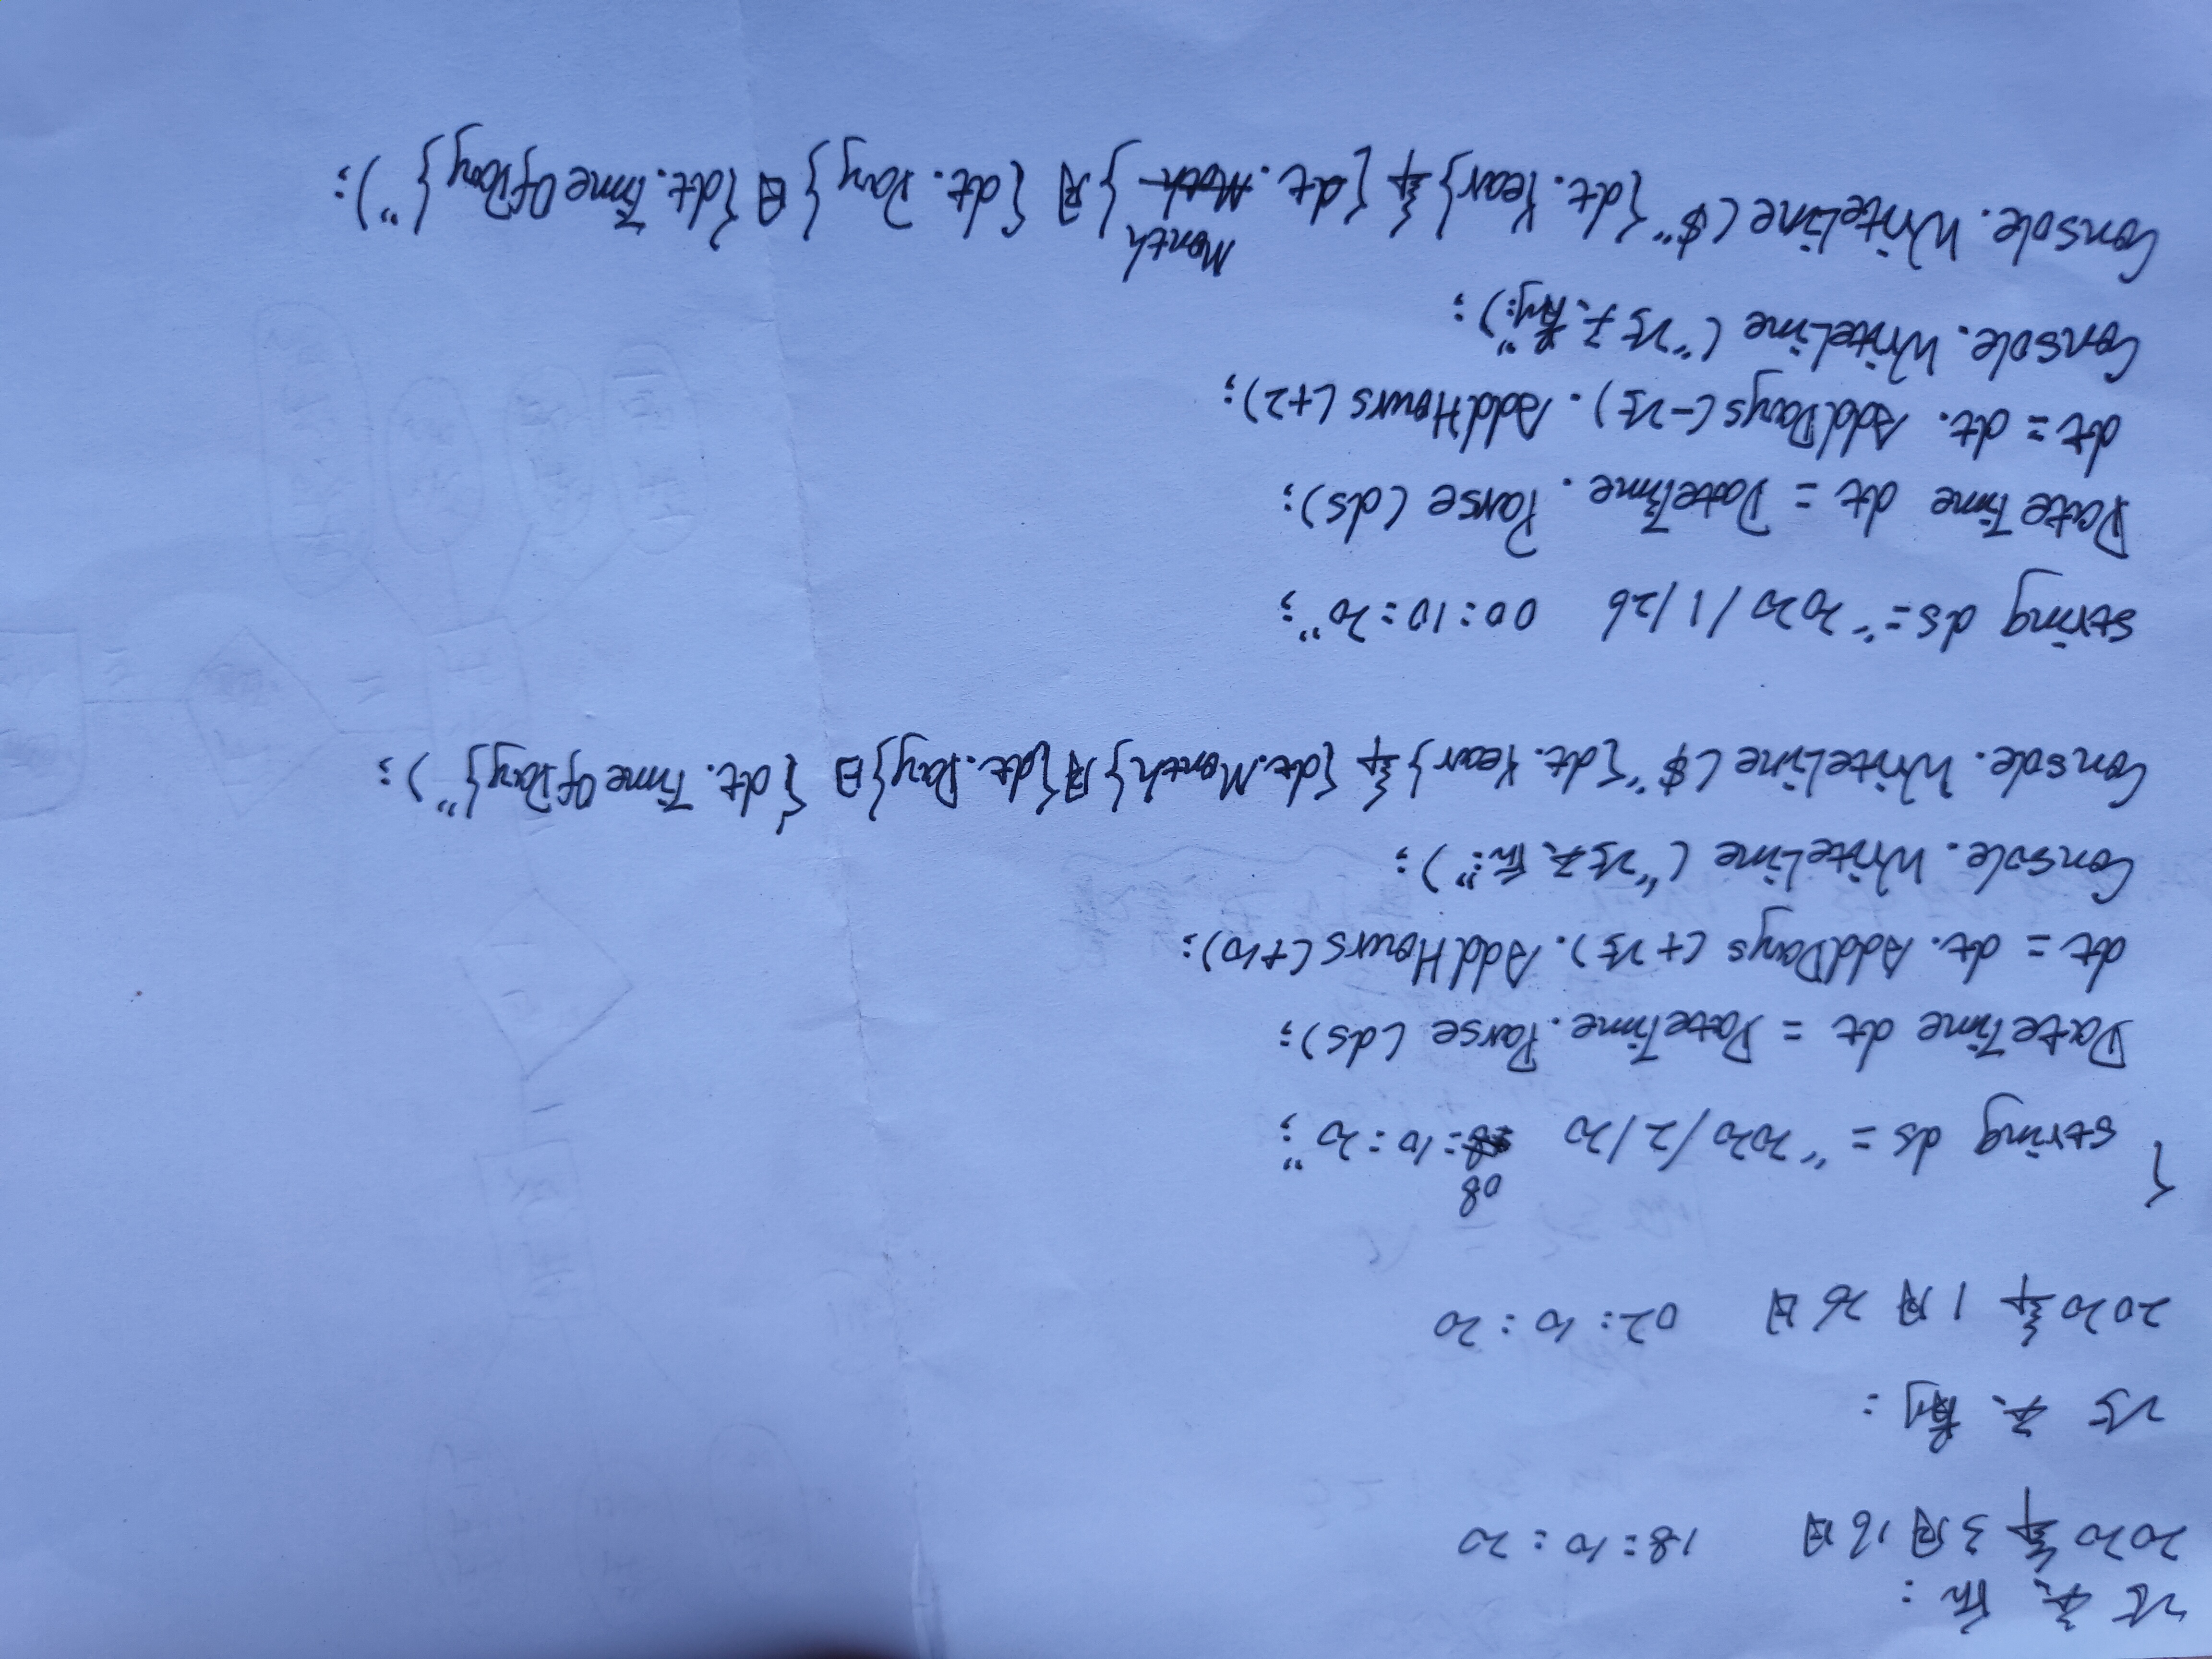 25天后:
2020年3月16日 18:10:20
25天前:
2020年1月26日 02:10:20
{
string ds = "2020/2/20 08:10:20";
DateTime dt = DateTime.Parse(ds);
dt = dt.AddDays(+25).AddHours(+10);
Console.WriteLine("25天后:");
Console.WriteLine($"{dt.Year}年{dt.Month}月{dt.Day}日 {dt.TimeOfDay}");
string ds="2020/1/26 00:10:20";
DateTime dt = DateTime.Parse(ds);
dt = dt.AddDays(-25).AddHours(+2);
Console.WriteLine("25天前:");
Console.WriteLine($"{dt.Year}年{dt.Month}月{dt.Day}日{dt.TimeOfDay}");